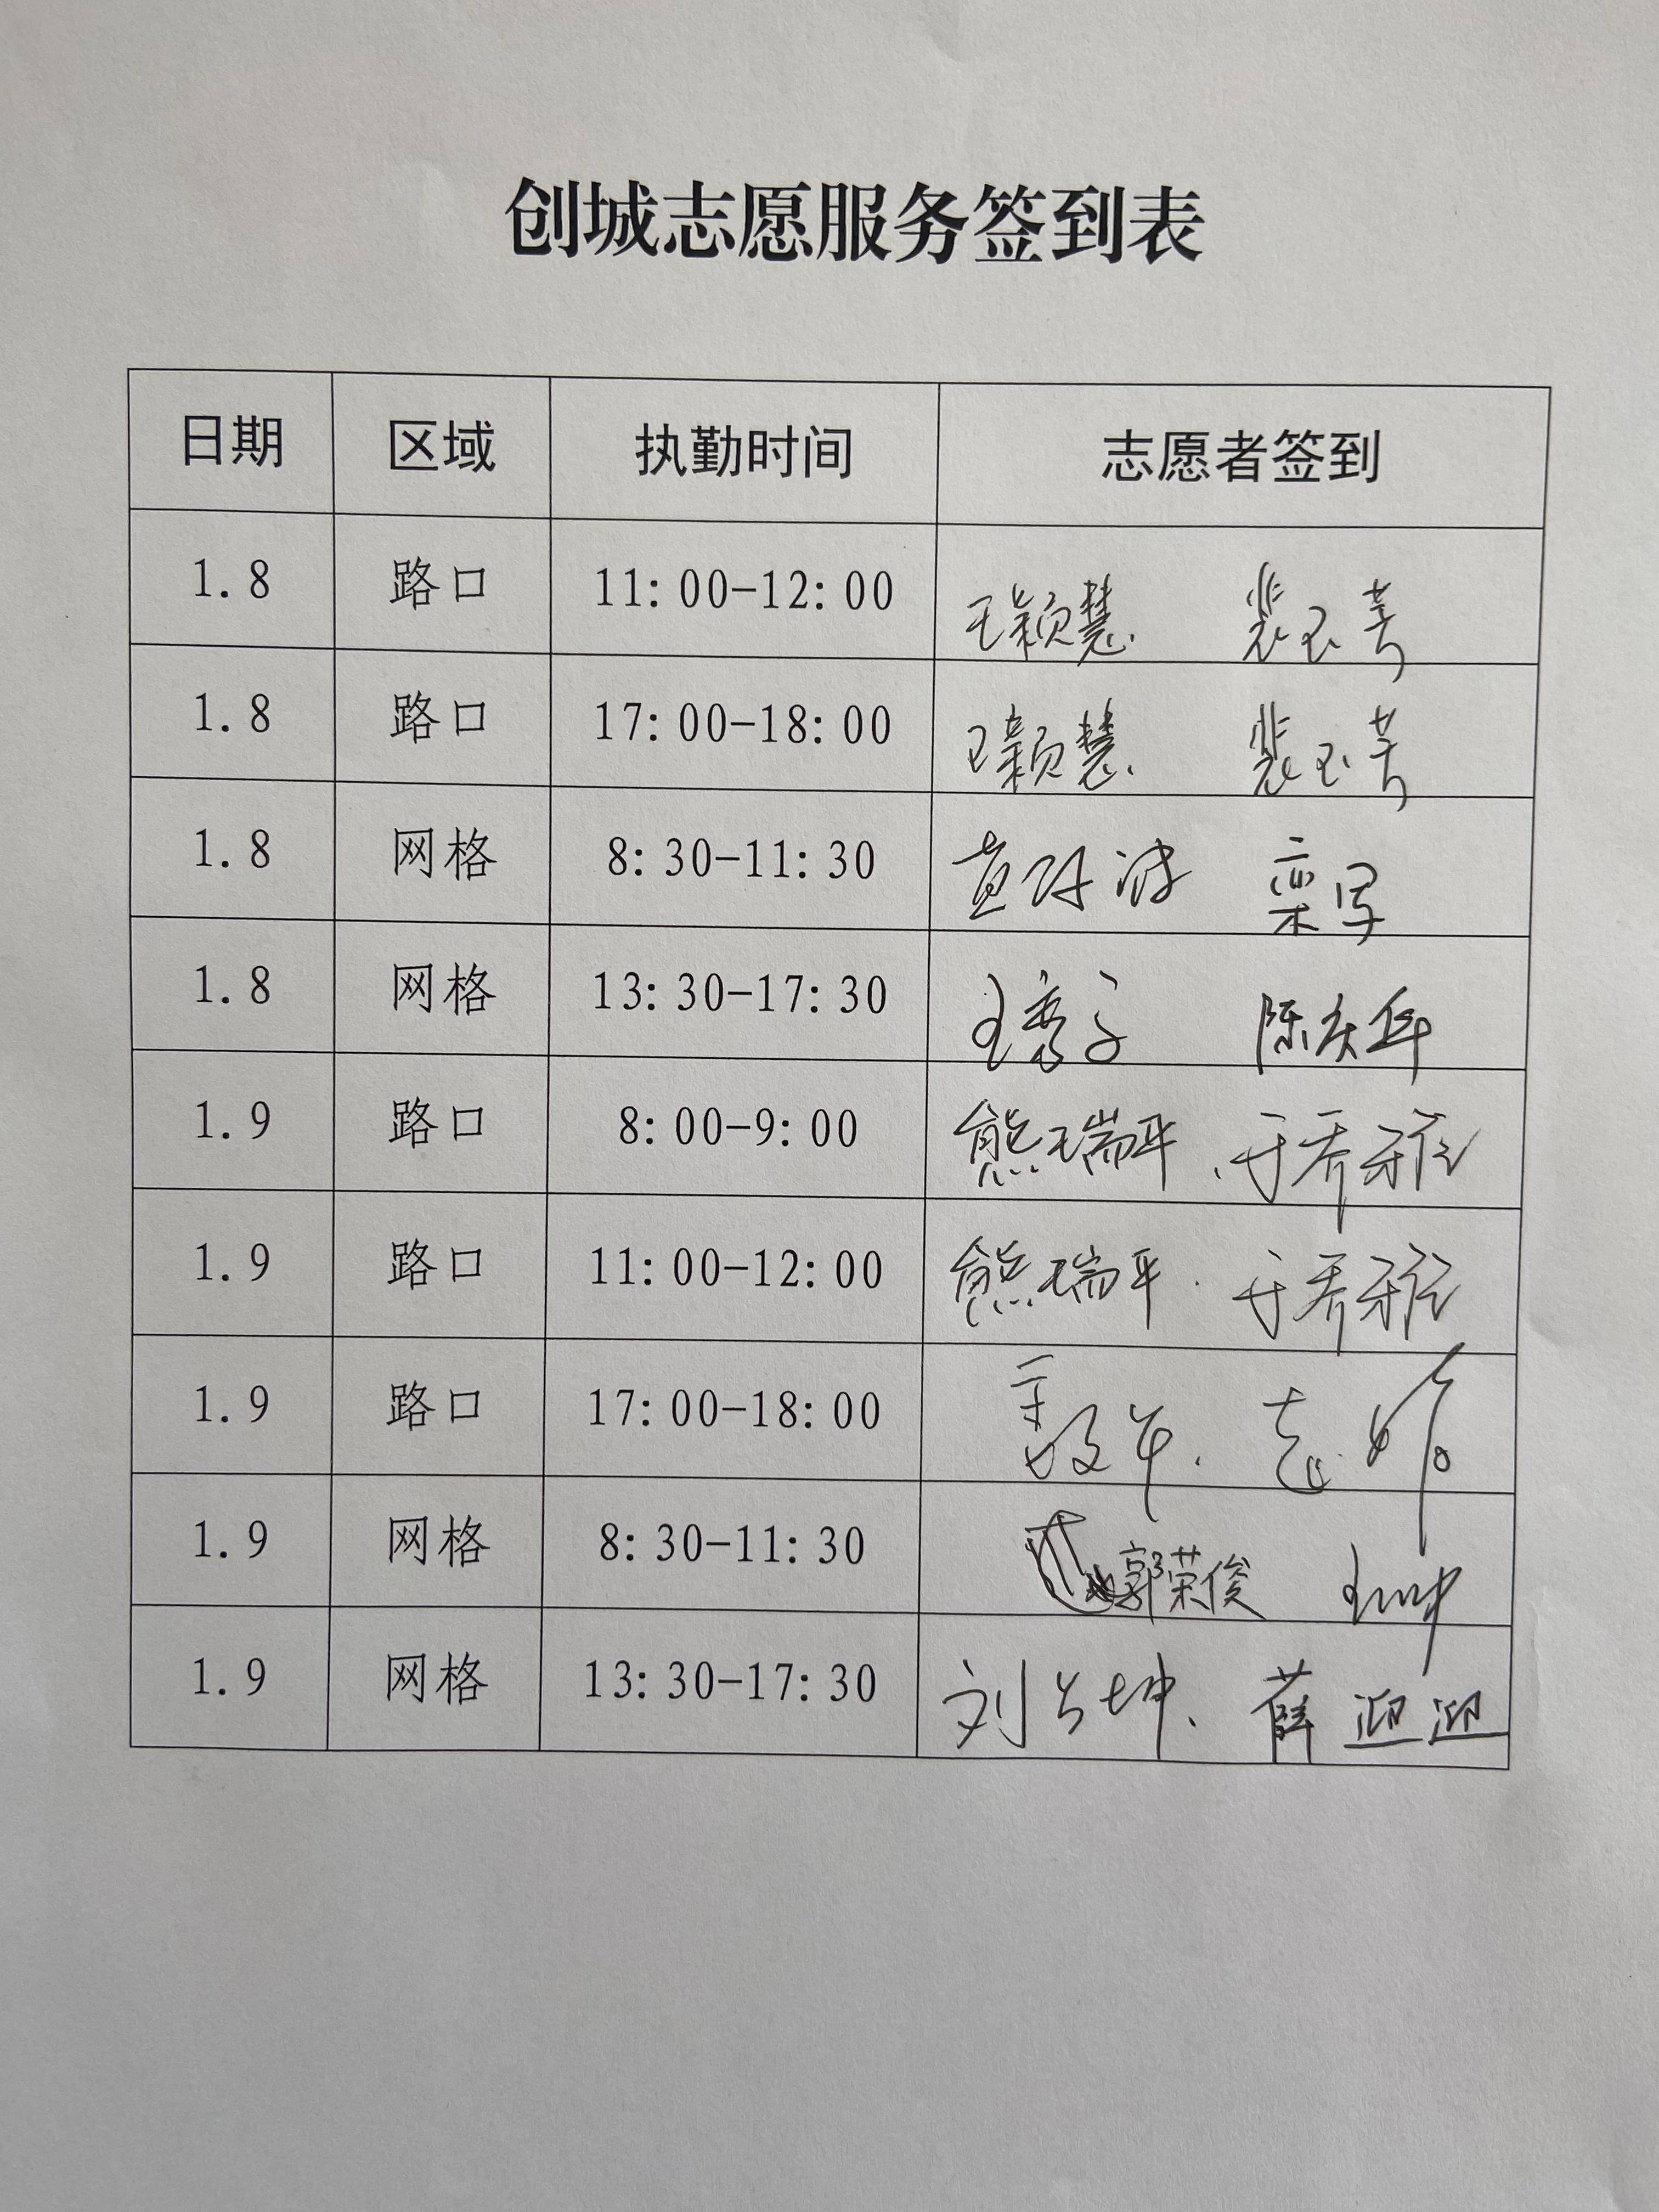 创城志愿服务签到表
日期 区域 执勤时间 志愿者签到
1.8 路口 11:00-12:00 王颖慧 裴玉芳
1.8 路口 17:00-18:00 王颖慧 裴玉芳
1.8 网格 8:30-11:30 黄 栾军
1.8 网格 13:30-17:30 王秀子 陈庆华
1.9 路口 8:00-9:00 熊瑞平 于乔雅
1.9 路口 11:00-12:00 熊瑞平 于乔雅
1.9 路口 17:00-18:00
1.9 网格 8:30-11:30 郭荣俊 王坤
1.9 网格 13:30-17:30 刘占坤 薛迎迎